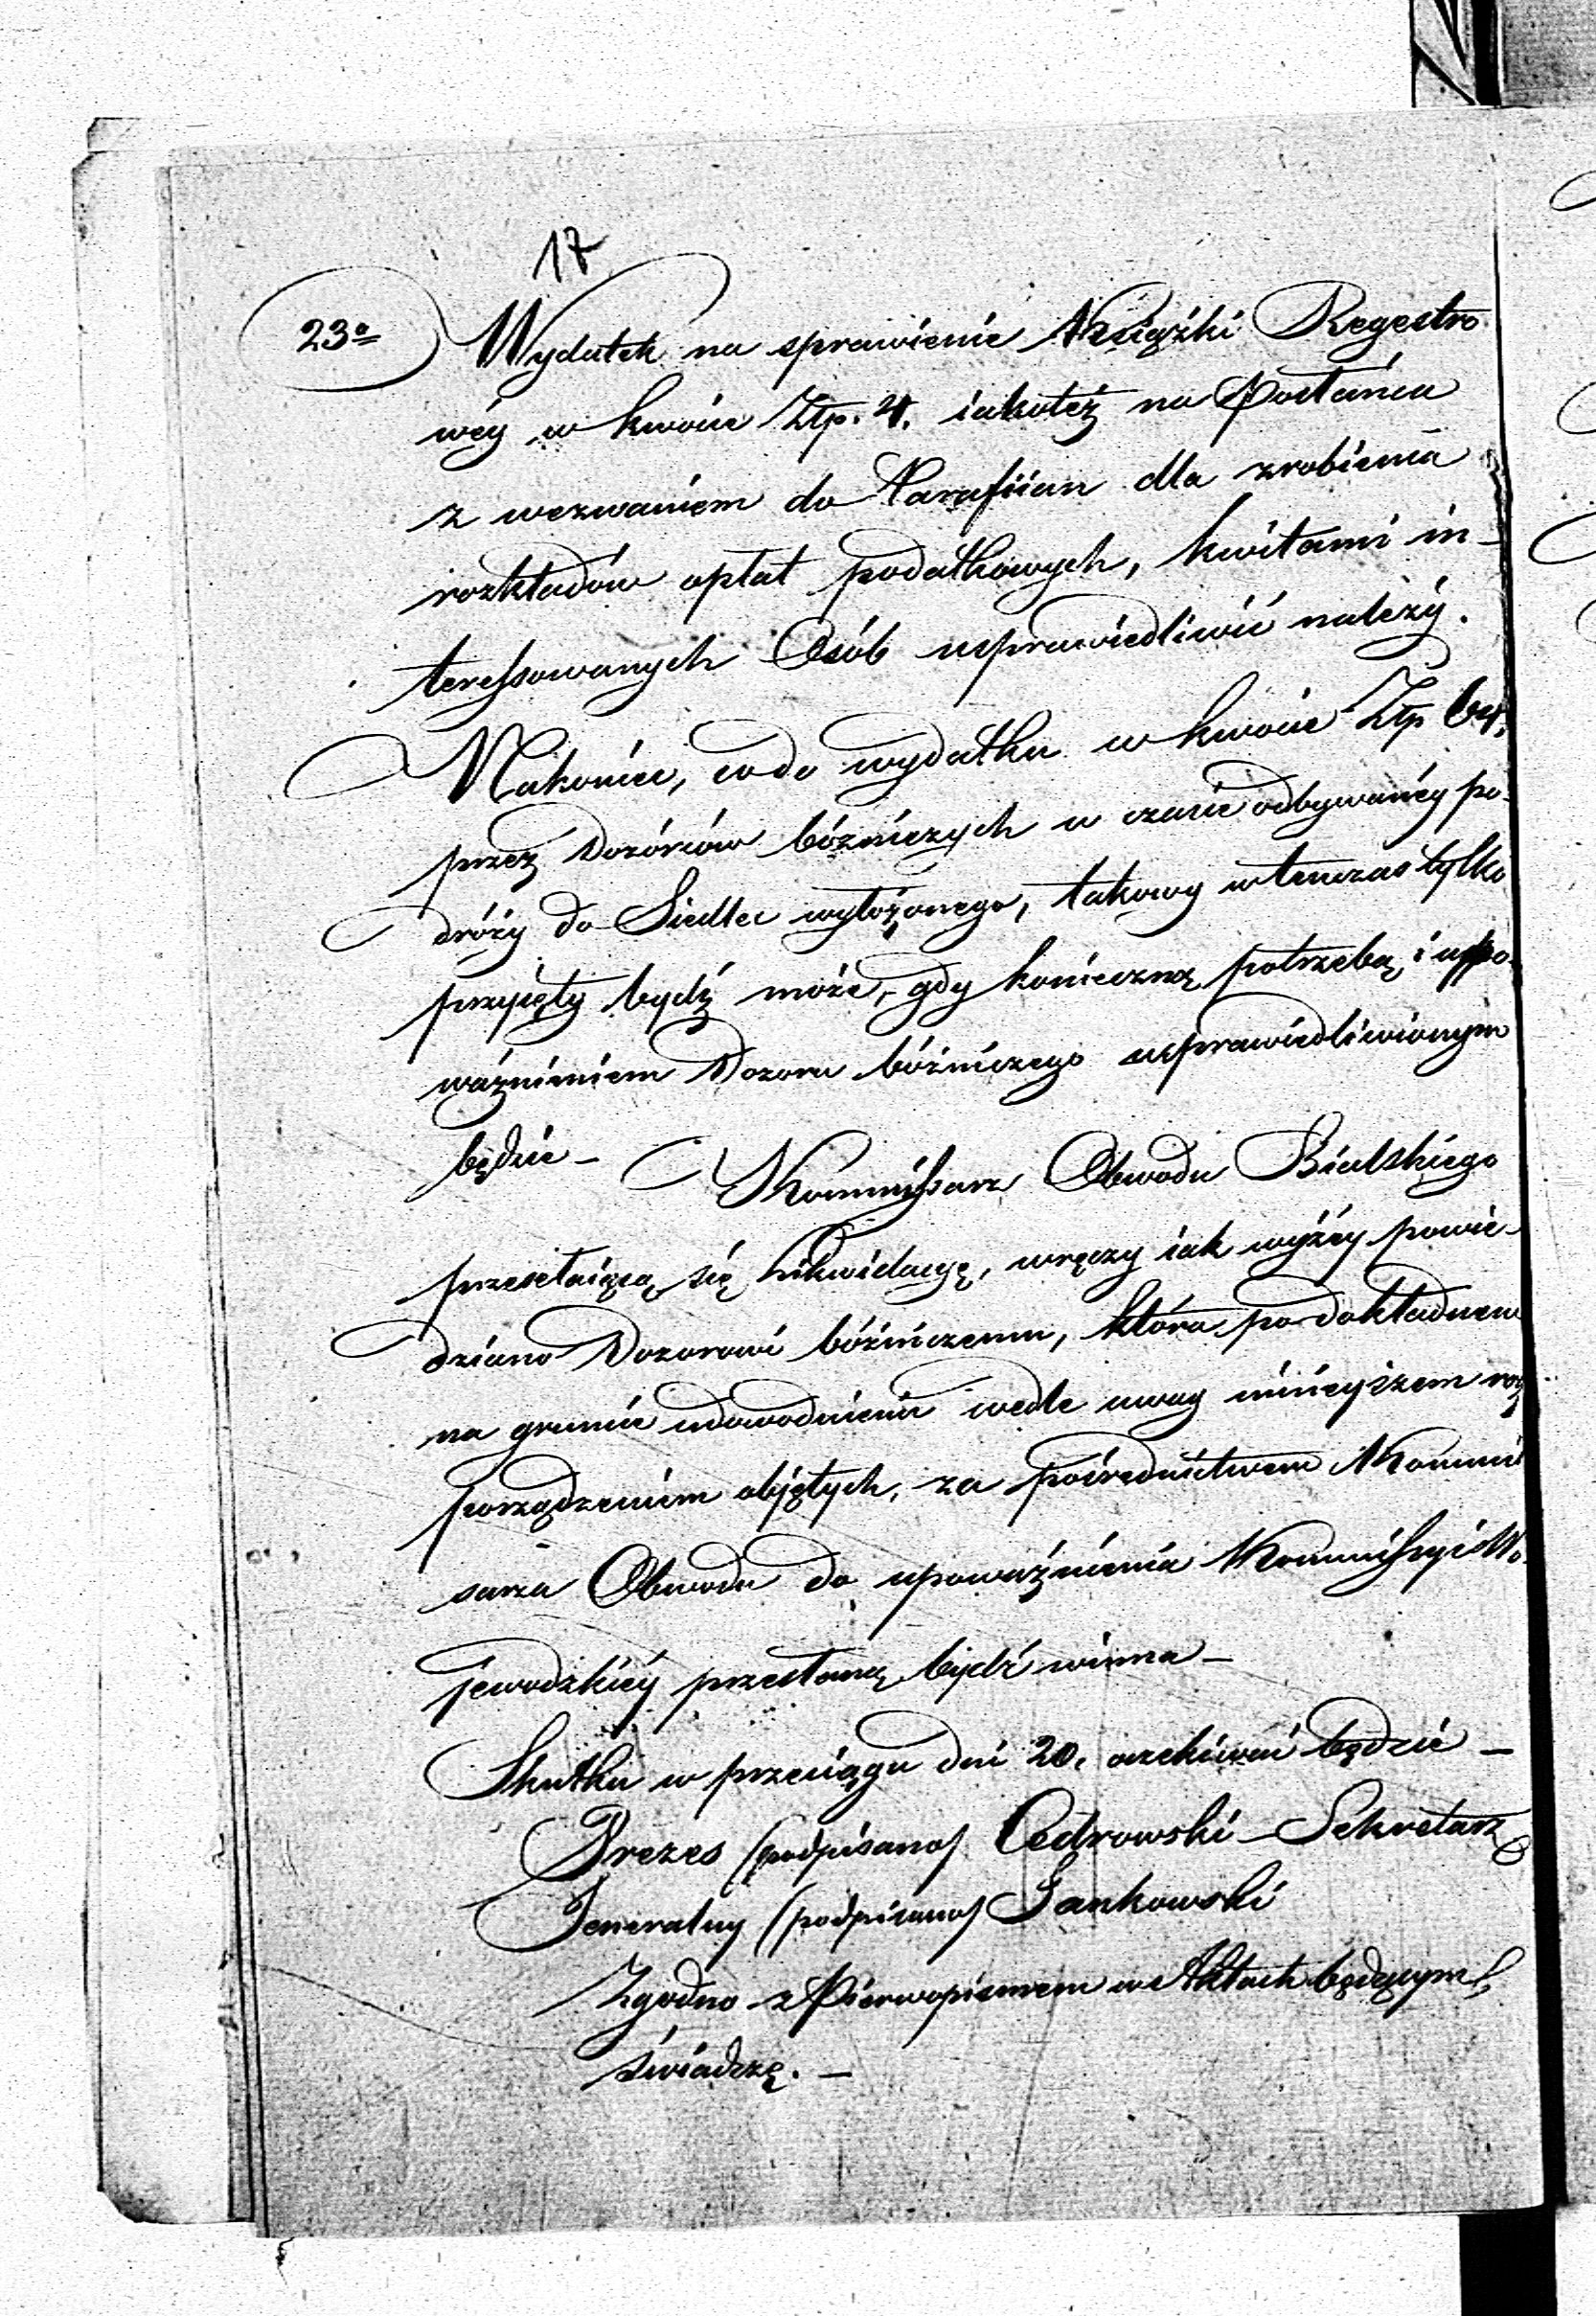 17
23o Wydatek na sprawienie Książki Regestro
wéy w kwocie Złp. 4. iakoteż na Posłańca
z wezwaniem do Parafiian dla zrobienia
rozkładów opłat podatkowych, kwitami in-
teressowanych Osób usprawiedliwić należy.
Nakoniec, co do wydatku w kwocie Złp 64,
przez Dozórców bóżniczych w czasie odbywanéy po-
dróży do Siedlec wyłożonego, takowy wtenczas tylko
przyięty bydź może, gdy konieczną potrzebą i upo-
ważnieniem Dozoru bóżniczego usprawiedliwionym
będzie –
Kommissarz Obwodu Bialskiego
przesełaiącą się Likwidacyę, wręczy iak wyżéy powie-
dziano Dozorowi bóżniczemu, która po dokładnem
na gruncie udowodnieniu wedle uwag ninieyszem roz
porządzeniem objętych, za pośrednictwem Kommis
sarza Obwodu do upoważnienia Kommissyi Wo-
jewodzkiéy przesłaną bydź winna –
Skutku w przeciągu dni 20. oczekiwać będzie –
Prezes (podpisano) Cedrowski – Sekretarz
Jeneralny (podpisano) Sankowski
Zgodno z Pierwopismem w Aktach będącym
świadczę. –